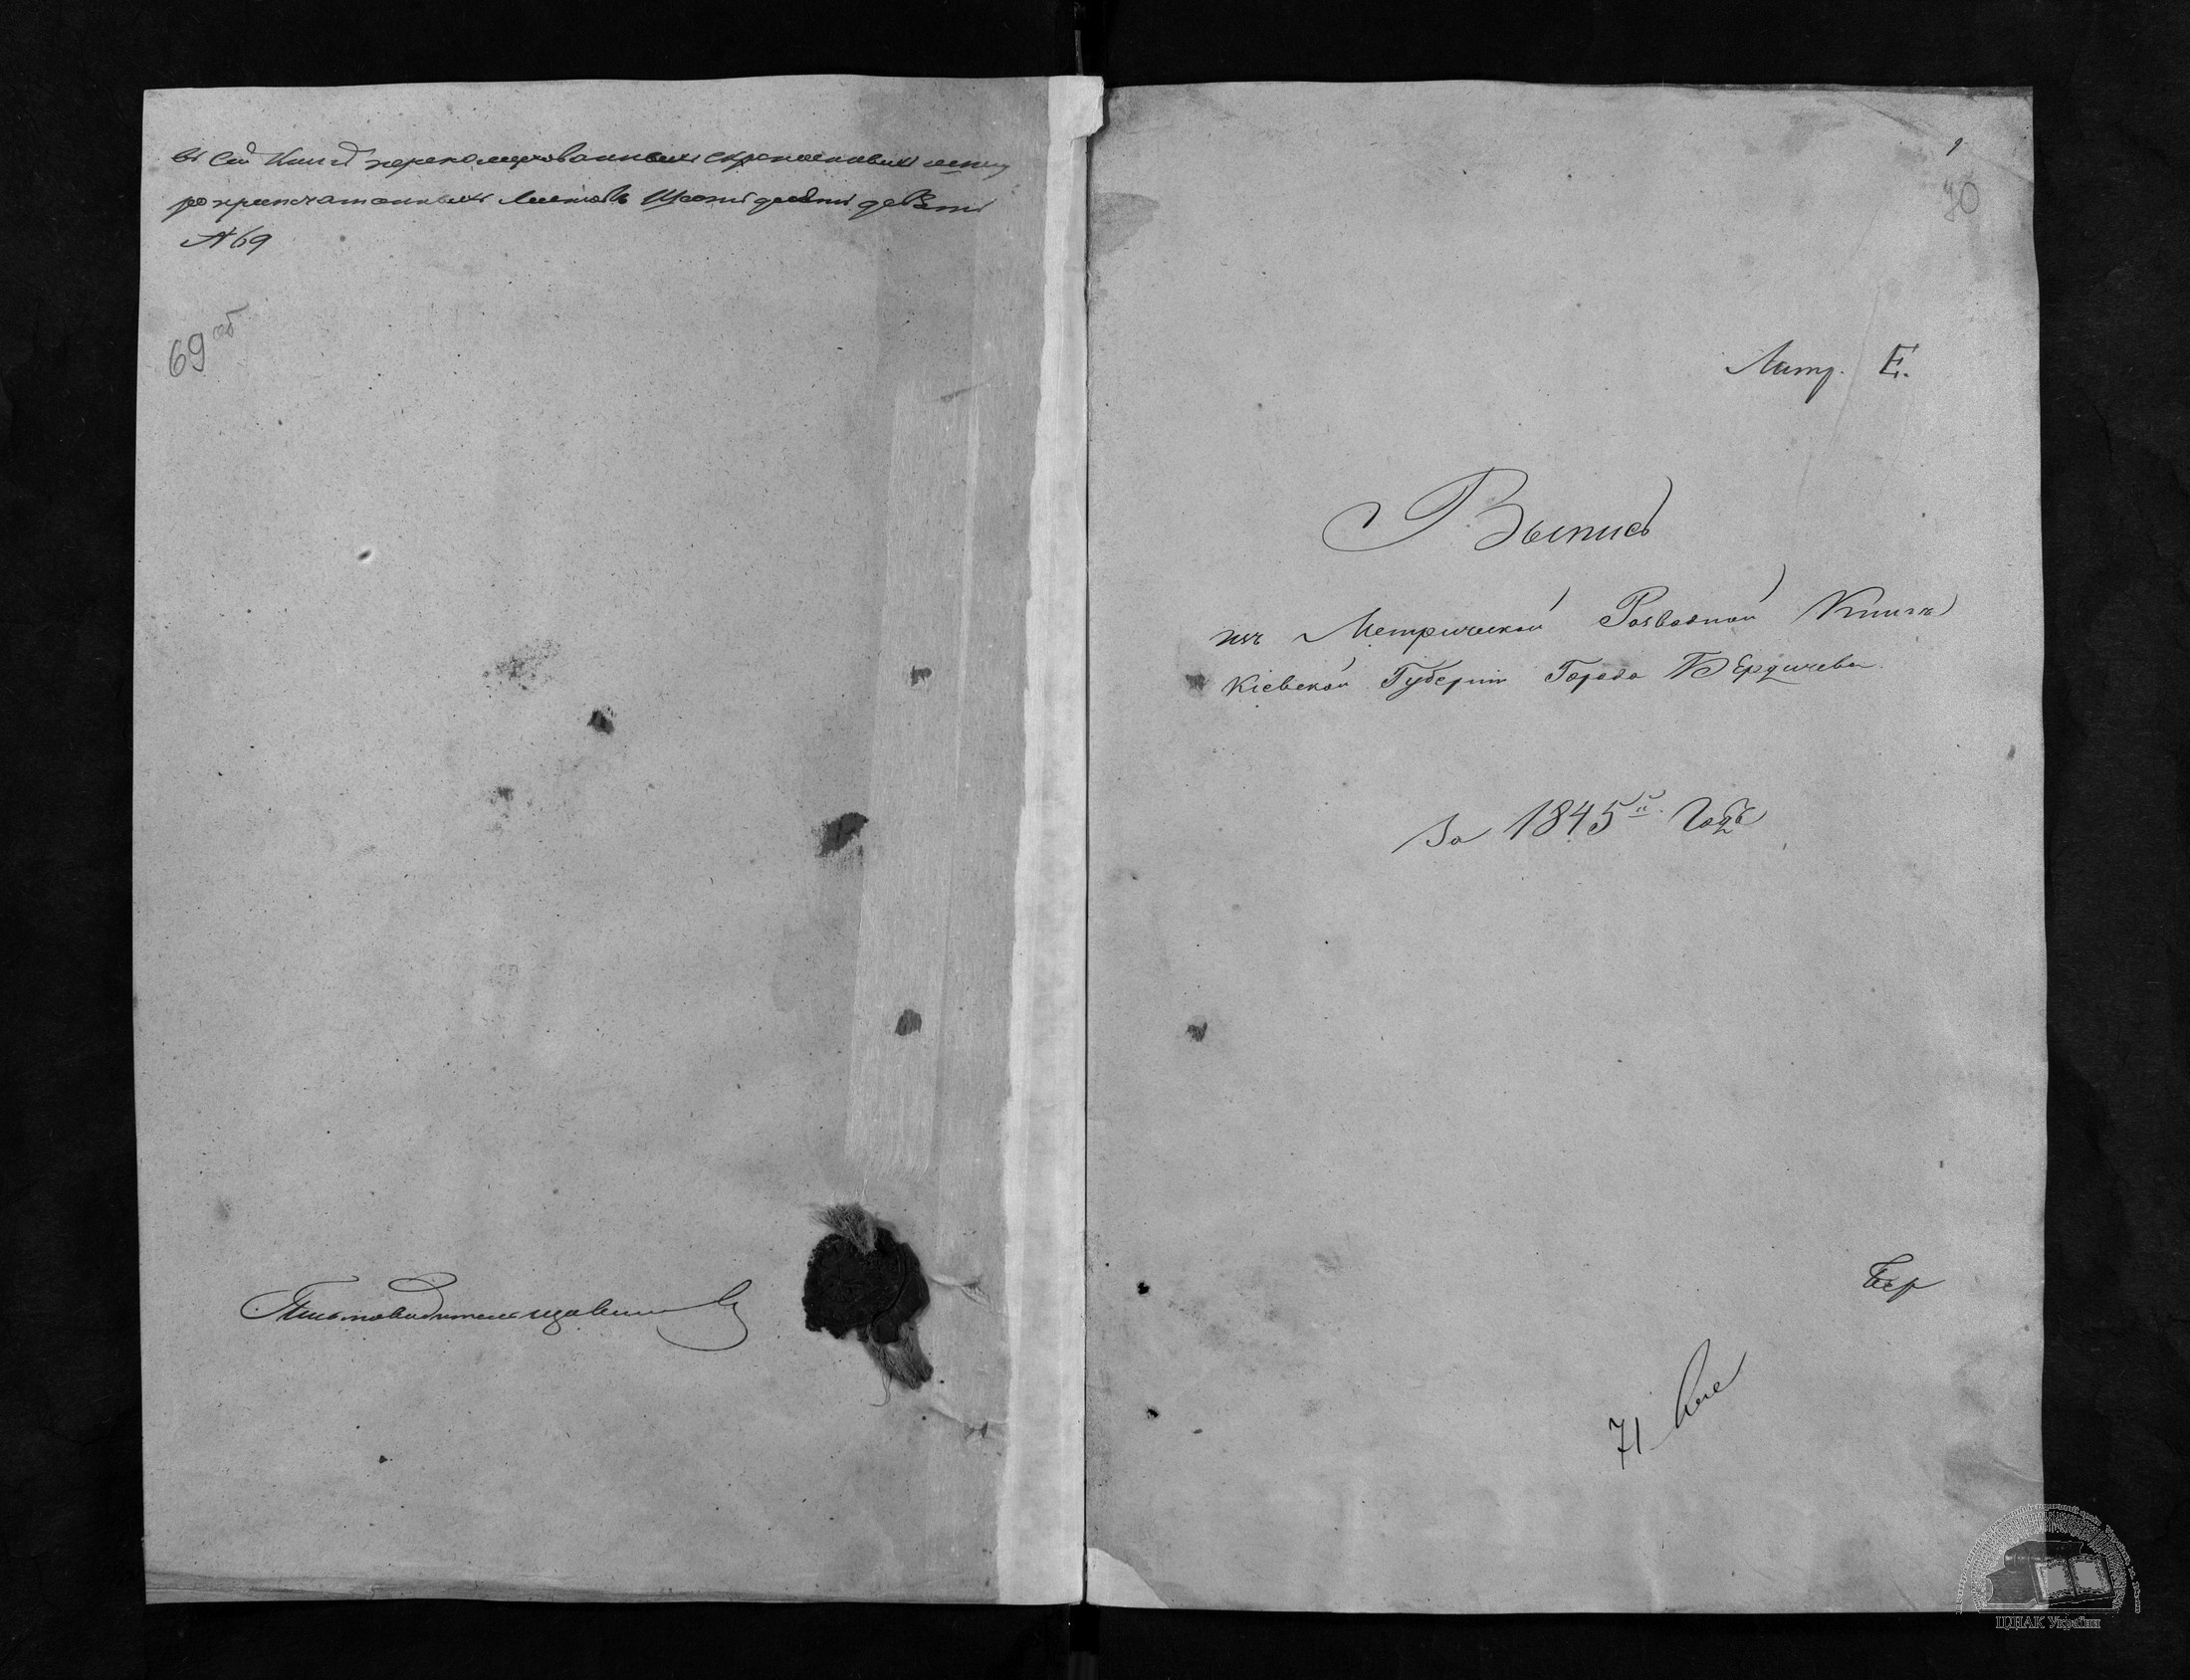 въ сей Книгѣ перенумерованныхъ скрепленныхъ
припечатанныхъ листовъ Шестьдесятъ девять
№ 69
69 об
Письмоводитель
1
70
Литр. Е.
Выпись
изъ Метрической Розводной Книги
Кіевской Губерніи Города Бердичева
За 1845й Годъ
Бер
71
ЦДІАК України